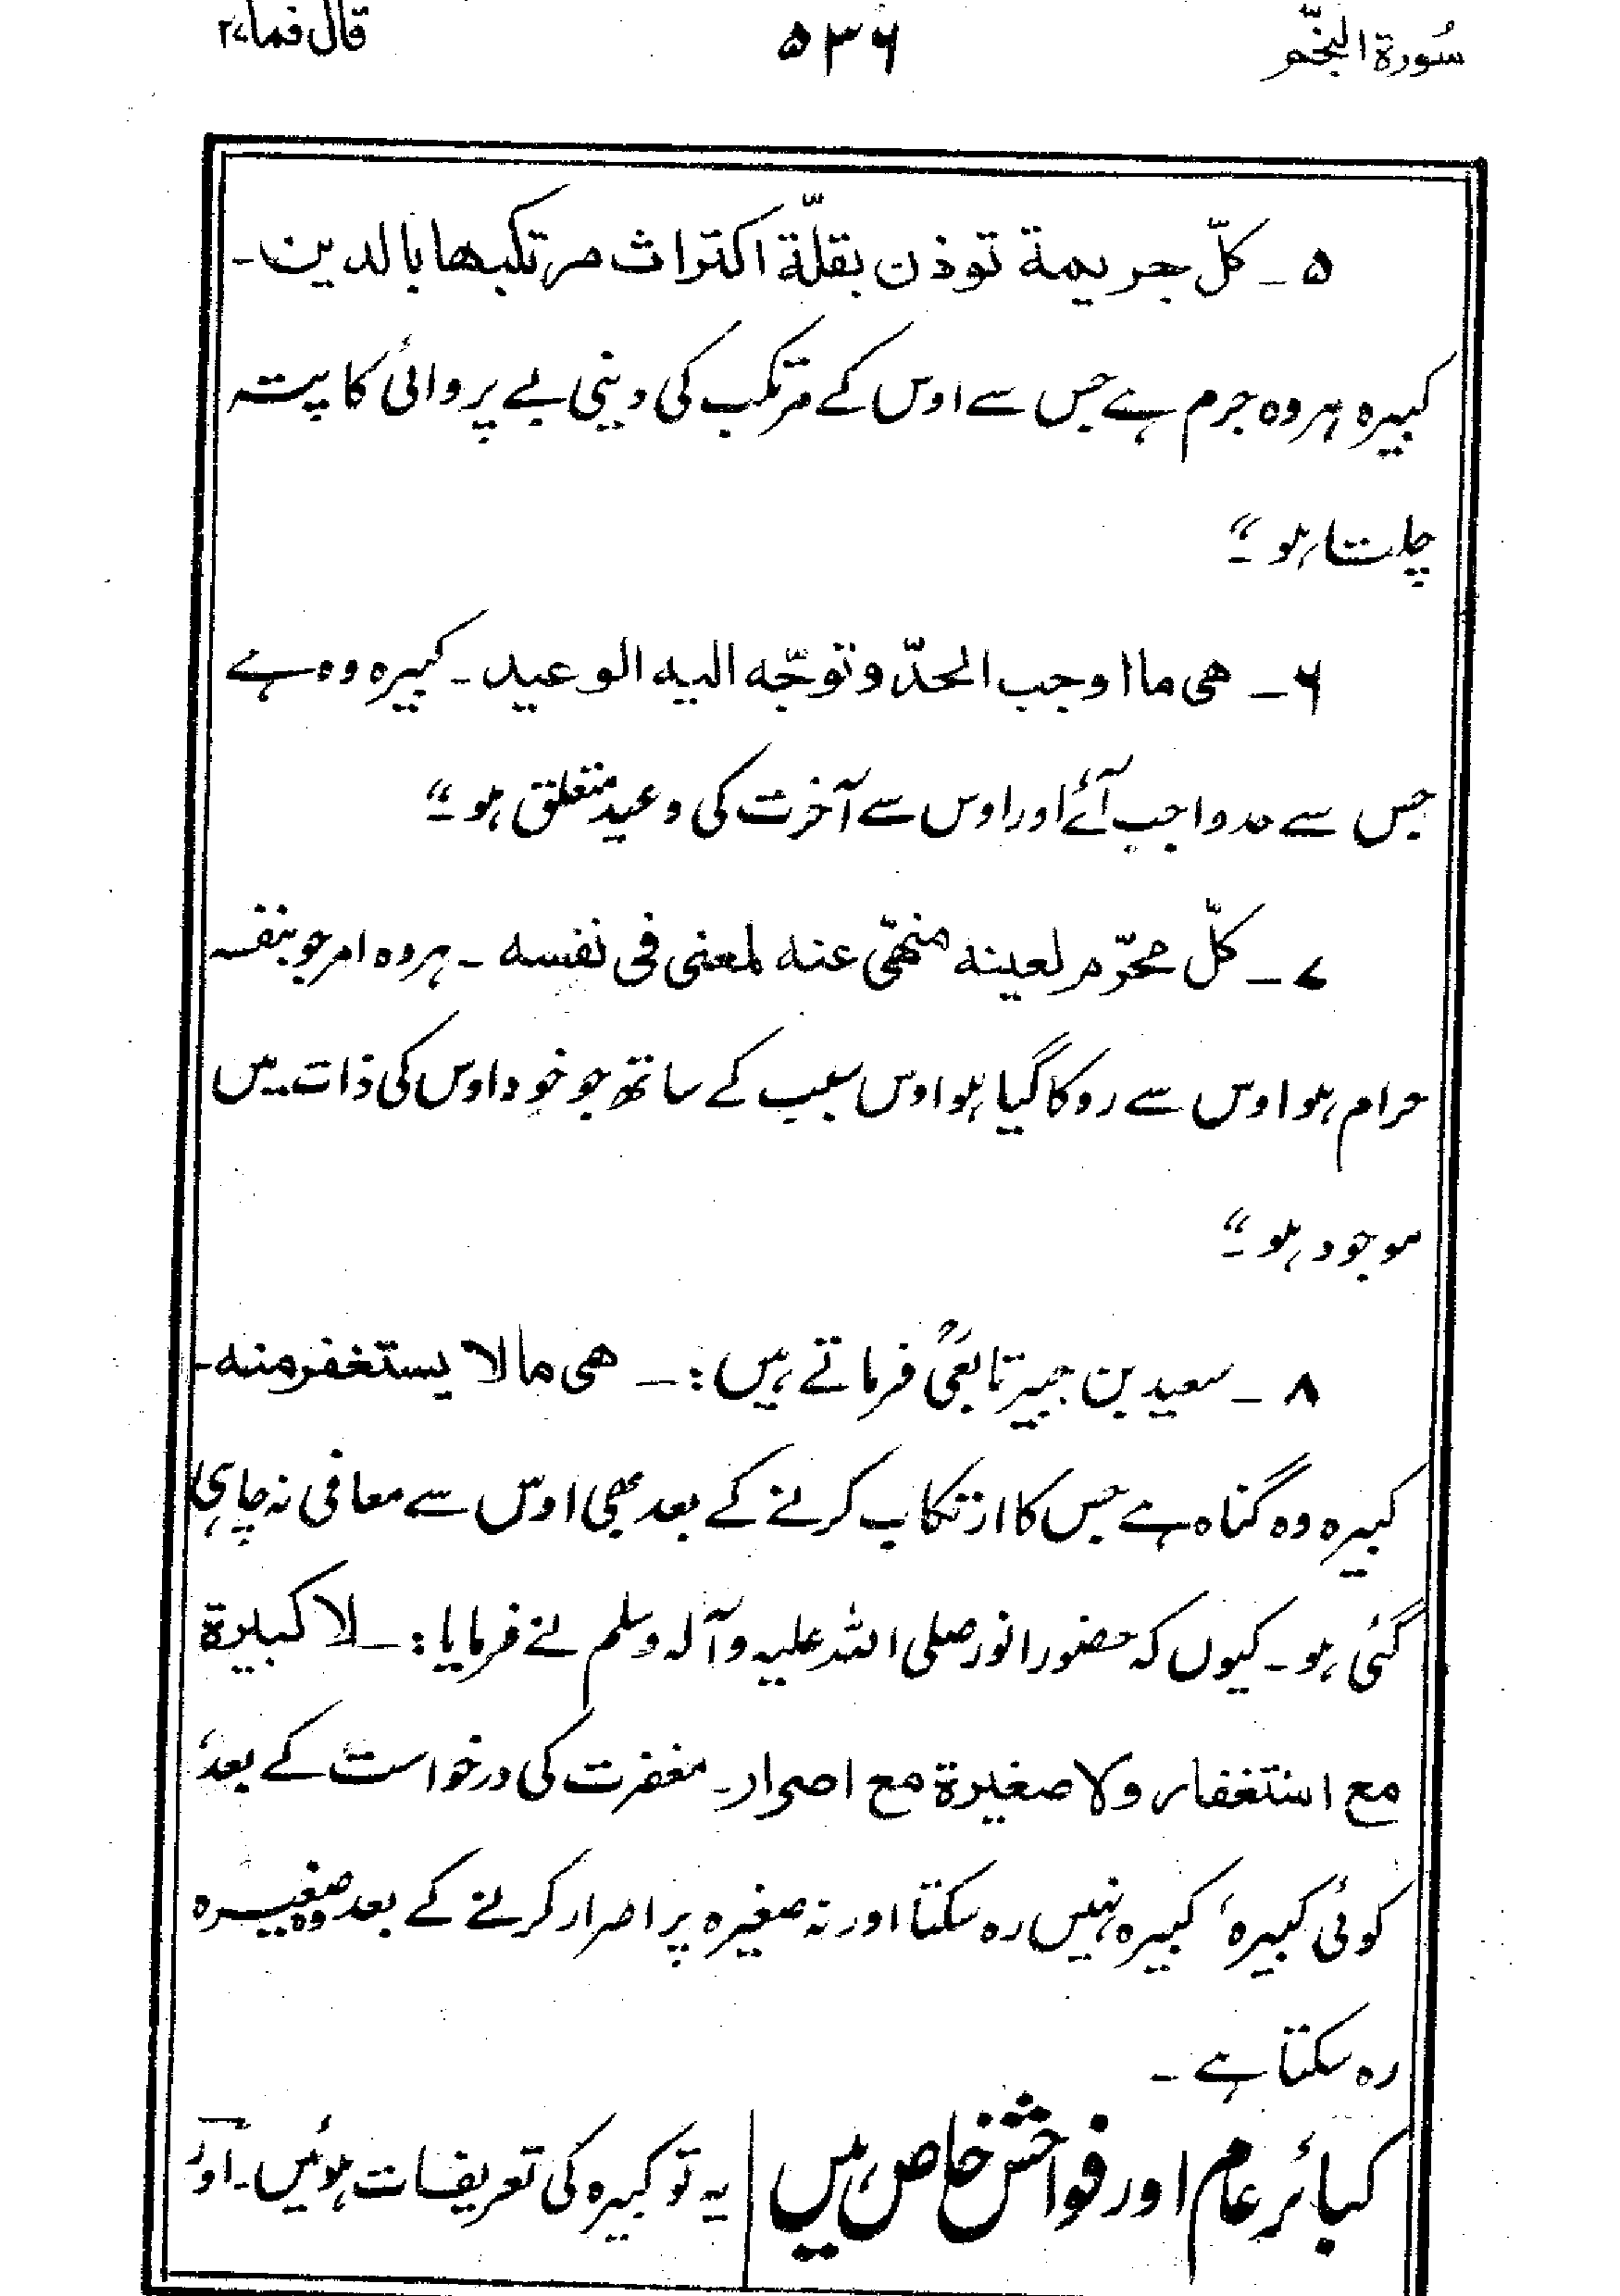 سُورة النجّم ۵۳۶ قال فما ۲۷
۵ ـ کلّ جریمة توذن بقلّة اکتراث مرتکبھا بالدین ـ
کبیرہ ہر وہ جرم ہے جس سے اوس کے مرتکب کی دینی بے پروائی کا پتہ
چلتا ہو ۔“
۶ ـ ھی ما اوجب الحدّ و توجّہ الیہ الوعید ـ کبیرہ وہ ہے
جس سے حد واجب آئے اور اوس سے آخرت کی وعید متعلق ہو ۔“
۷ ـ کلّ محرّم لعینہ منھیّ عنہ لمعنی فی نفسہ ـ ہر وہ امر جو بنفسہ
حرام ہو اوس سے روکا گیا ہو اوس سبب کے ساتھ جو خود اوس کی ذات میں
موجود ہو ۔“
۸ ـ سعید بن جبیر تابعیؒ فرماتے ہیں : ـ ھی ما لا یستغفر منہ ـ
کبیرہ وہ گناہ ہے جس کا ارتکاب کرنے کے بعد بھی اوس سے معافی نہ چاہی
گئی ہو ۔ کیوں کہ حضور انور صلی اللہ علیہ و آلہ وسلم نے فرمایا : ـ لا کبیرة
مع استغفار ولا صغیرة مع اصرار ـ مغفرت کی درخواست کے بعد،
کوئی کبیرہ، کبیرہ نہیں رہ سکتا اور نہ صغیرہ پر اصرار کرنے کے بعد وہ صغیرہ
رہ سکتا ہے ۔
کبائر عام اور فواحش خاص ہیں | یہ تو کبیرہ کی تعریفات ہوئیں ۔ اور